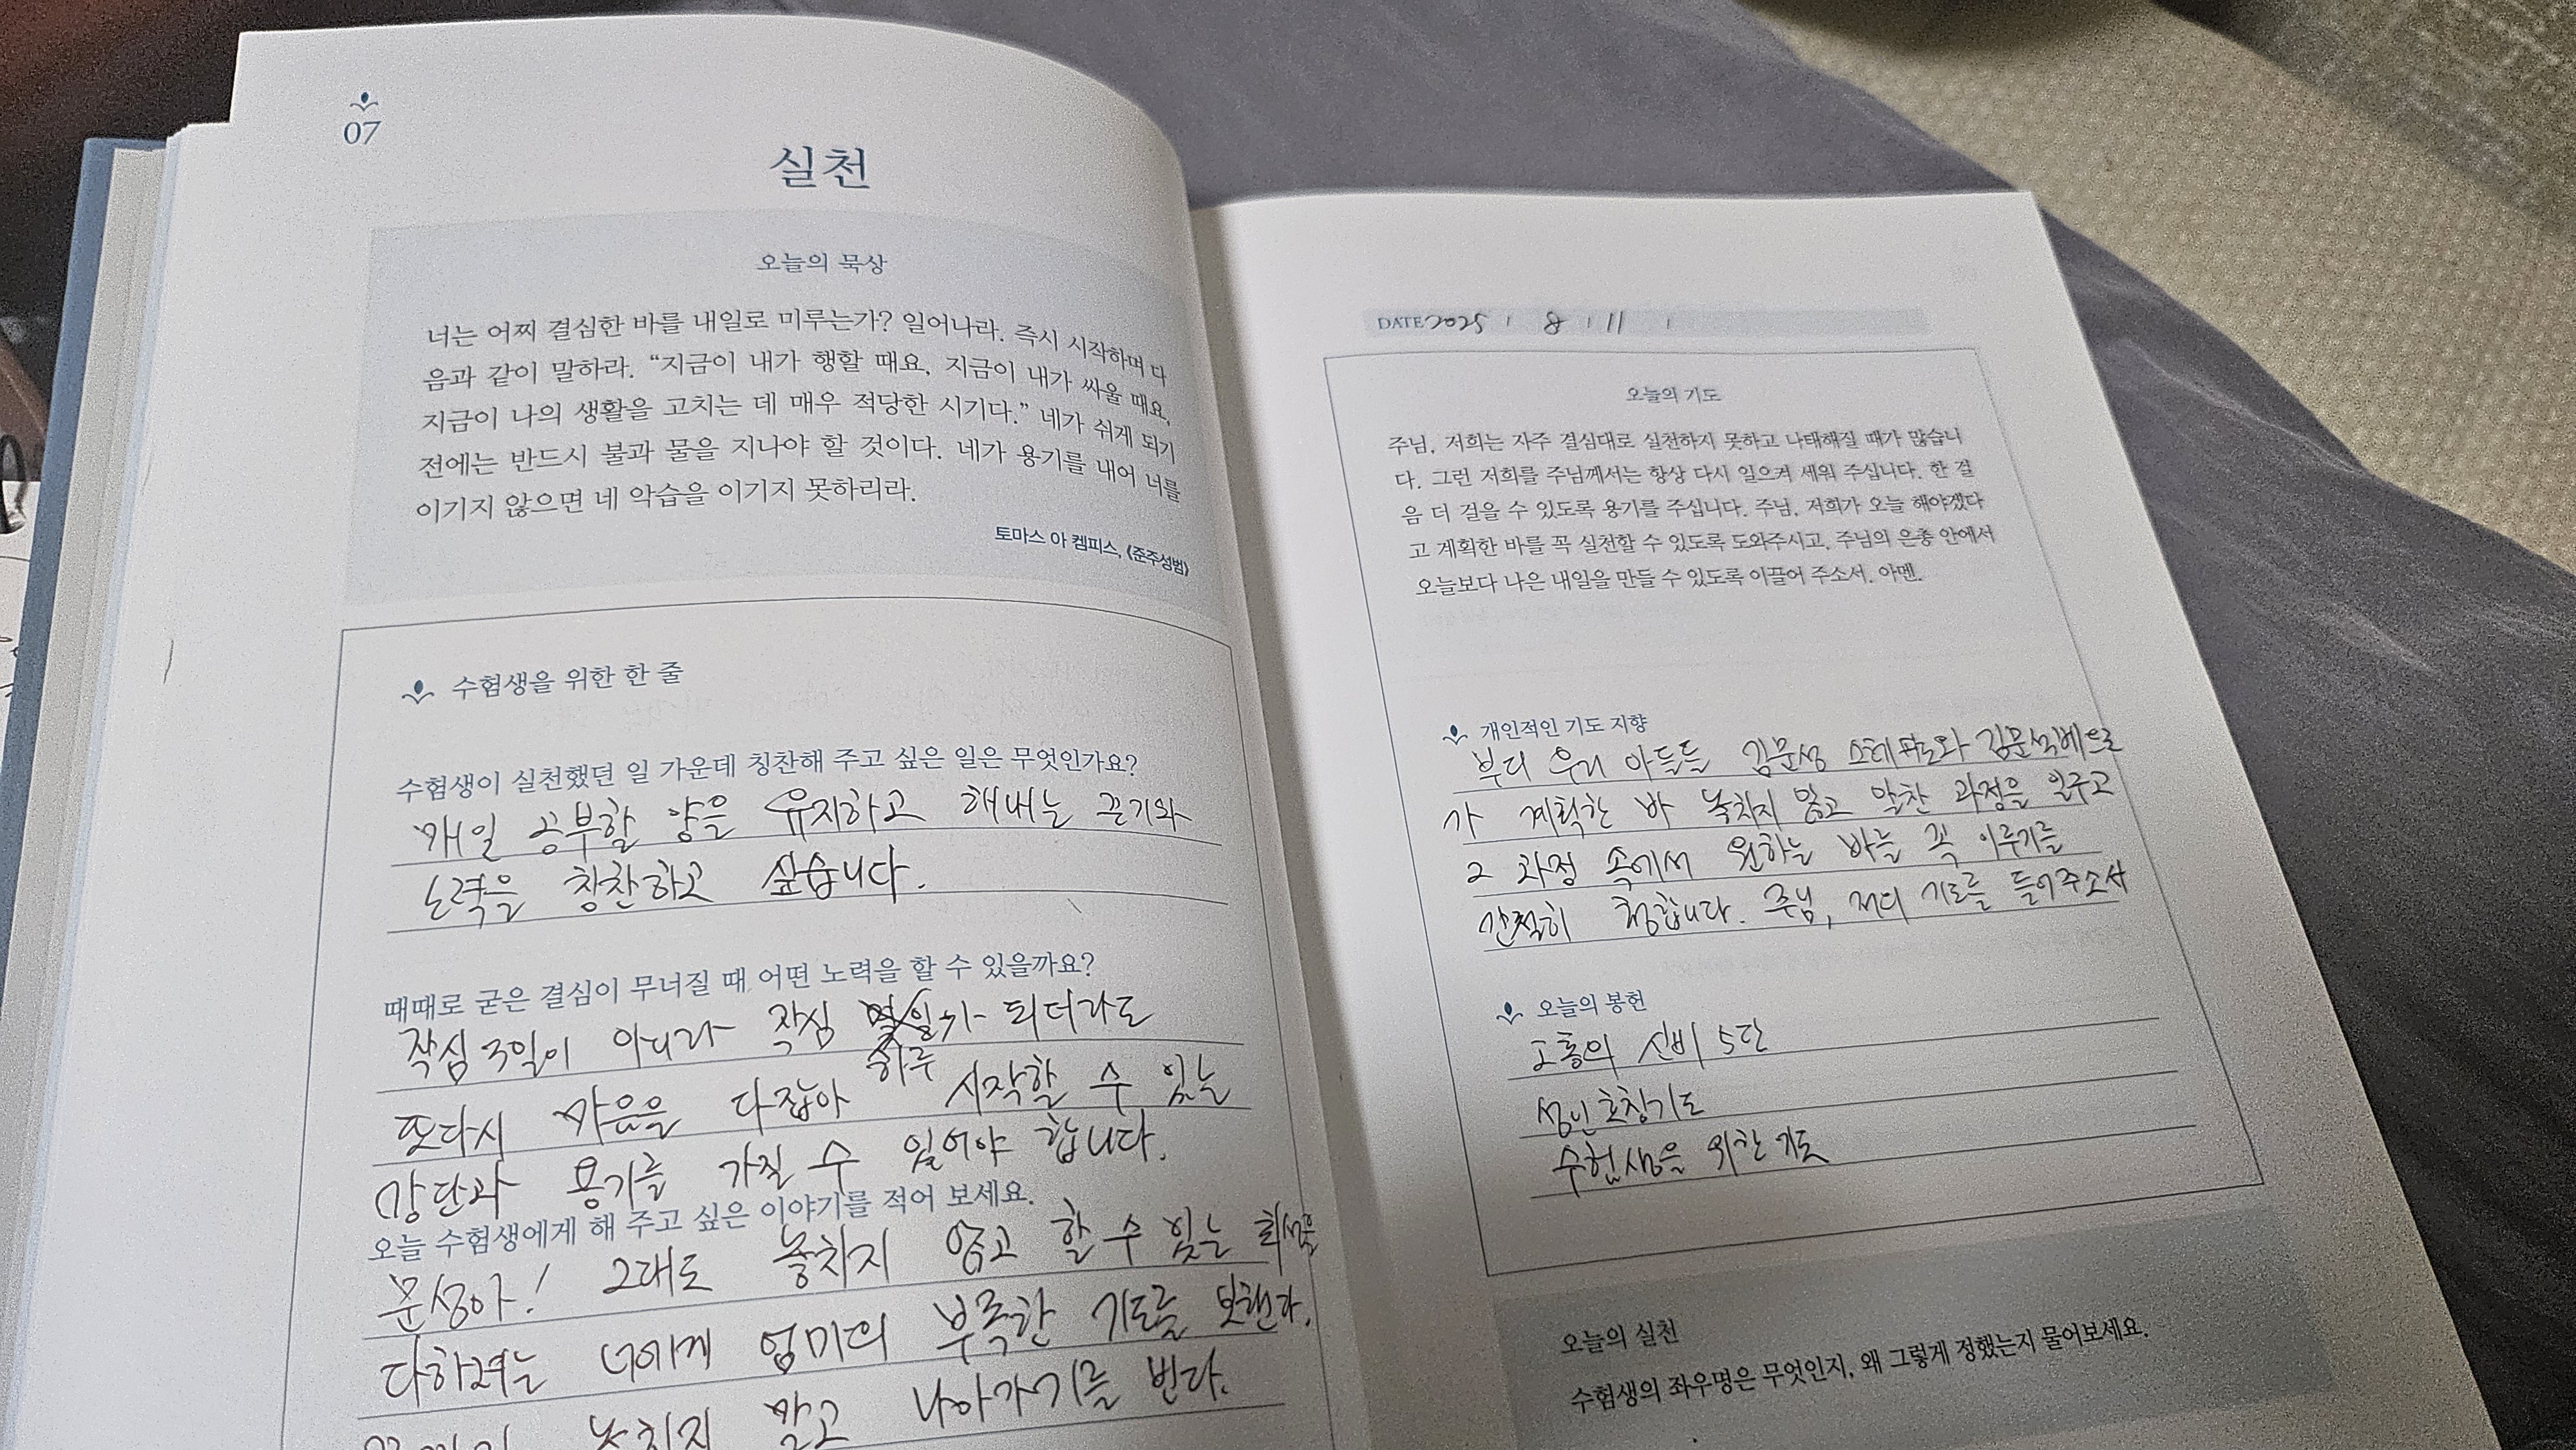 07
실천
오늘의 묵상
너는 어찌 결심한 바를 내일로 미루는가? 일어나라. 즉시 시작하며 다
음과 같이 말하라. “지금이 내가 행할 때요, 지금이 내가 싸울 때요,
지금이 나의 생활을 고치는 데 매우 적당한 시기다.” 네가 쉬게 되기
전에는 반드시 불과 물을 지나야 할 것이다. 네가 용기를 내어 너를
이기지 않으면 네 악습을 이기지 못하리라.
토마스 아 켐피스, 《준주성범》
수험생을 위한 한 줄
수험생이 실천했던 일 가운데 칭찬해 주고 싶은 일은 무엇인가요?
매일 공부할 양을 유지하고 해내는 끈기와
노력을 칭찬하고 싶습니다.
때때로 굳은 결심이 무너질 때 어떤 노력을 할 수 있을까요?
작심 3일이 아니라 작심 하루가 되더라도
또다시 마음을 다잡아 시작할 수 있는
강단과 용기를 가질 수 있어야 합니다.
오늘 수험생에게 해 주고 싶은 이야기를 적어 보세요.
문성아! 그래도 놓치지 않고 할 수 있는 최선을
다하려는 너에게 엄마의 부족한 기도를 보탠다.
놓치지 말고 나아가기를 빈다.
DATE 2025 8 11
오늘의 기도
주님, 저희는 자주 결심대로 실천하지 못하고 나태해질 때가 많습니
다. 그런 저희를 주님께서는 항상 다시 일으켜 세워 주십니다. 한 걸
음 더 걸을 수 있도록 용기를 주십니다. 주님, 저희가 오늘 해야겠다
고 계획한 바를 꼭 실천할 수 있도록 도와주시고, 주님의 은총 안에서
오늘보다 나은 내일을 만들 수 있도록 이끌어 주소서. 아멘.
개인적인 기도 지향
부디 우리 아들들 김문성 스테파노와 김문석베드로
가 계획한 바 놓치지 않고 알찬 과정을 일구고
그 과정 속에서 원하는 바를 꼭 이루기를
간절히 청합니다. 주님, 저의 기도를 들어주소서
오늘의 봉헌
고통의 신비 5단
성인호칭기도
수험생을 위한 기도
오늘의 실천
수험생의 좌우명은 무엇인지, 왜 그렇게 정했는지 물어보세요.